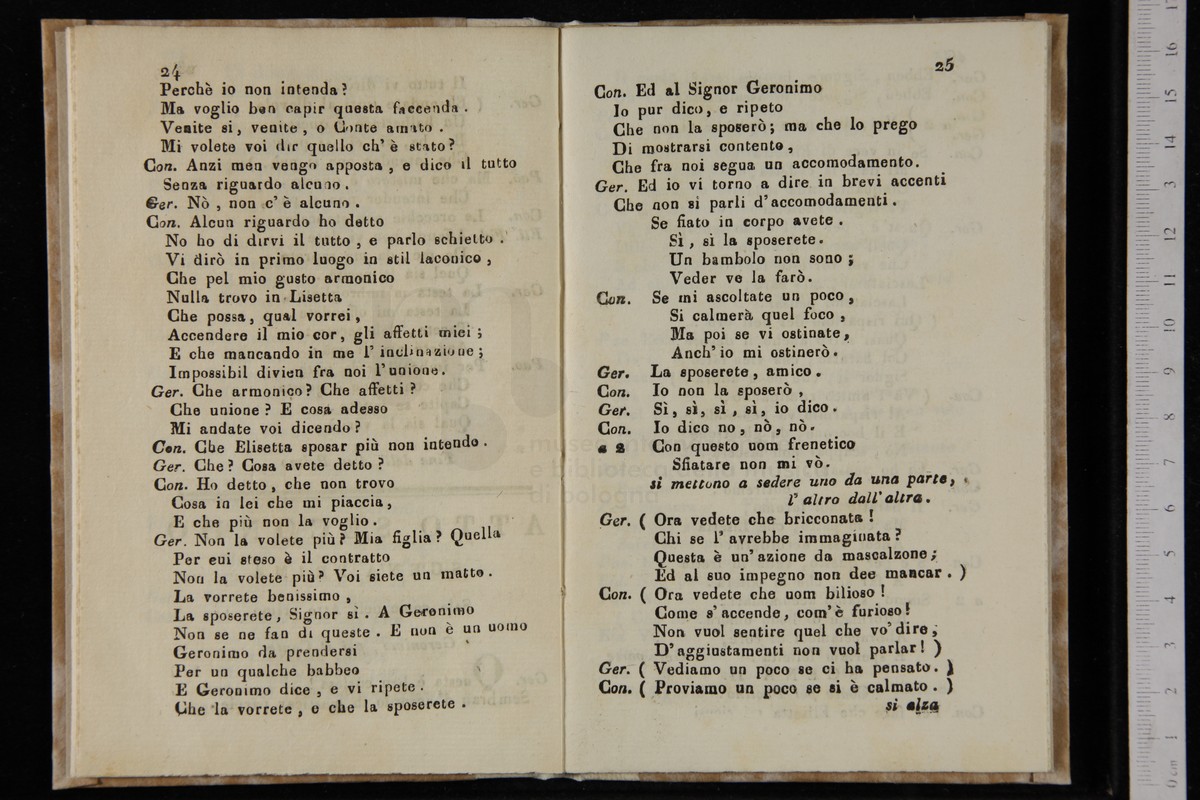 24
Perchè io non intenda?
Ma voglio ben capir questa faccenda.
Venite si, venite, o Conte amato.
Mi volete voi dir quello ch' è stato?
Con. Anzi men vengo apposta, e dico il tutto
Senza riguardo alcuno.
Ger. Nò, non c' è alcuno.
Con. Alcun riguardo ho detto
No ho di dirvi il tutto, e parlo schietto.
Vi dirò in primo luogo in stil laconico,
Che pel mio gusto armonico
Nulla trovo in Lisetta
Che possa, qual vorrei,
Accendere il mio cor, gli affetti miei;
E che mancando in me l' inclinazione;
Impossibil divien fra noi l'unione.
Ger. Che armonico? Che affetti?
Che unione? E cosa adesso
Mi andate voi dicendo?
Con. Che Elisetta sposar più non intendo.
Ger. Che? Cosa avete detto?
Con. Ho detto, che non trovo
Cosa in lei che mi piaccia,
E che più non la voglio.
Ger. Non la volete più? Mia figlia? Quella
Per cui steso è il contratto
Non la volete più? Voi siete un matto.
La vorrete benissimo,
La sposerete, Signor sì. A Geronimo
Non se ne fan di queste. E non è un uomo
Geronimo da prendersi
Per un qualche babbeo
E Geronimo dice, e vi ripete.
Che la vorrete, e che la sposerete.
25
Con. Ed al Signor Geronimo
Io pur dico, e ripeto
Che non la sposerò; ma che lo prego
Di mostrarsi contento,
Che fra noi segua un accomodamento.
Ger. Ed io vi torno a dire in brevi accenti
Che non si parli d'accomodamenti.
Se fiato in corpo avete.
Sì, sì la sposerete.
Un bambolo non sono;
Veder ve la farò.
Con. Se mi ascoltate un poco,
Si calmerà quel foco,
Ma poi se vi ostinate,
Anch' io mi ostinerò.
Ger. La sposerete, amico.
Con. Io non la sposerò,
Ger. Sì, sì, sì, sì, io dico.
Con. Io dico no, nò, nò.
a 2 Con questo uom frenetico
Sfiatare non mi vò.
si mettono a sedere uno da una parte,
l' altro dall' altra.
Ger. ( Ora vedete che bricconata!
Chi se l' avrebbe immaginata?
Questa è un' azione da mascalzone;
Ed al suo impegno non dee mancar. )
Con. ( Ora vedete che uom bilioso!
Come s' accende, com' è furioso!
Non vuol sentire quel che vo' dire,
D' aggiustamenti non vuol parlar! )
Ger. ( Vediamo un poco se ci ha pensato. )
Con. ( Proviamo un poco se si è calmato. )
si alza